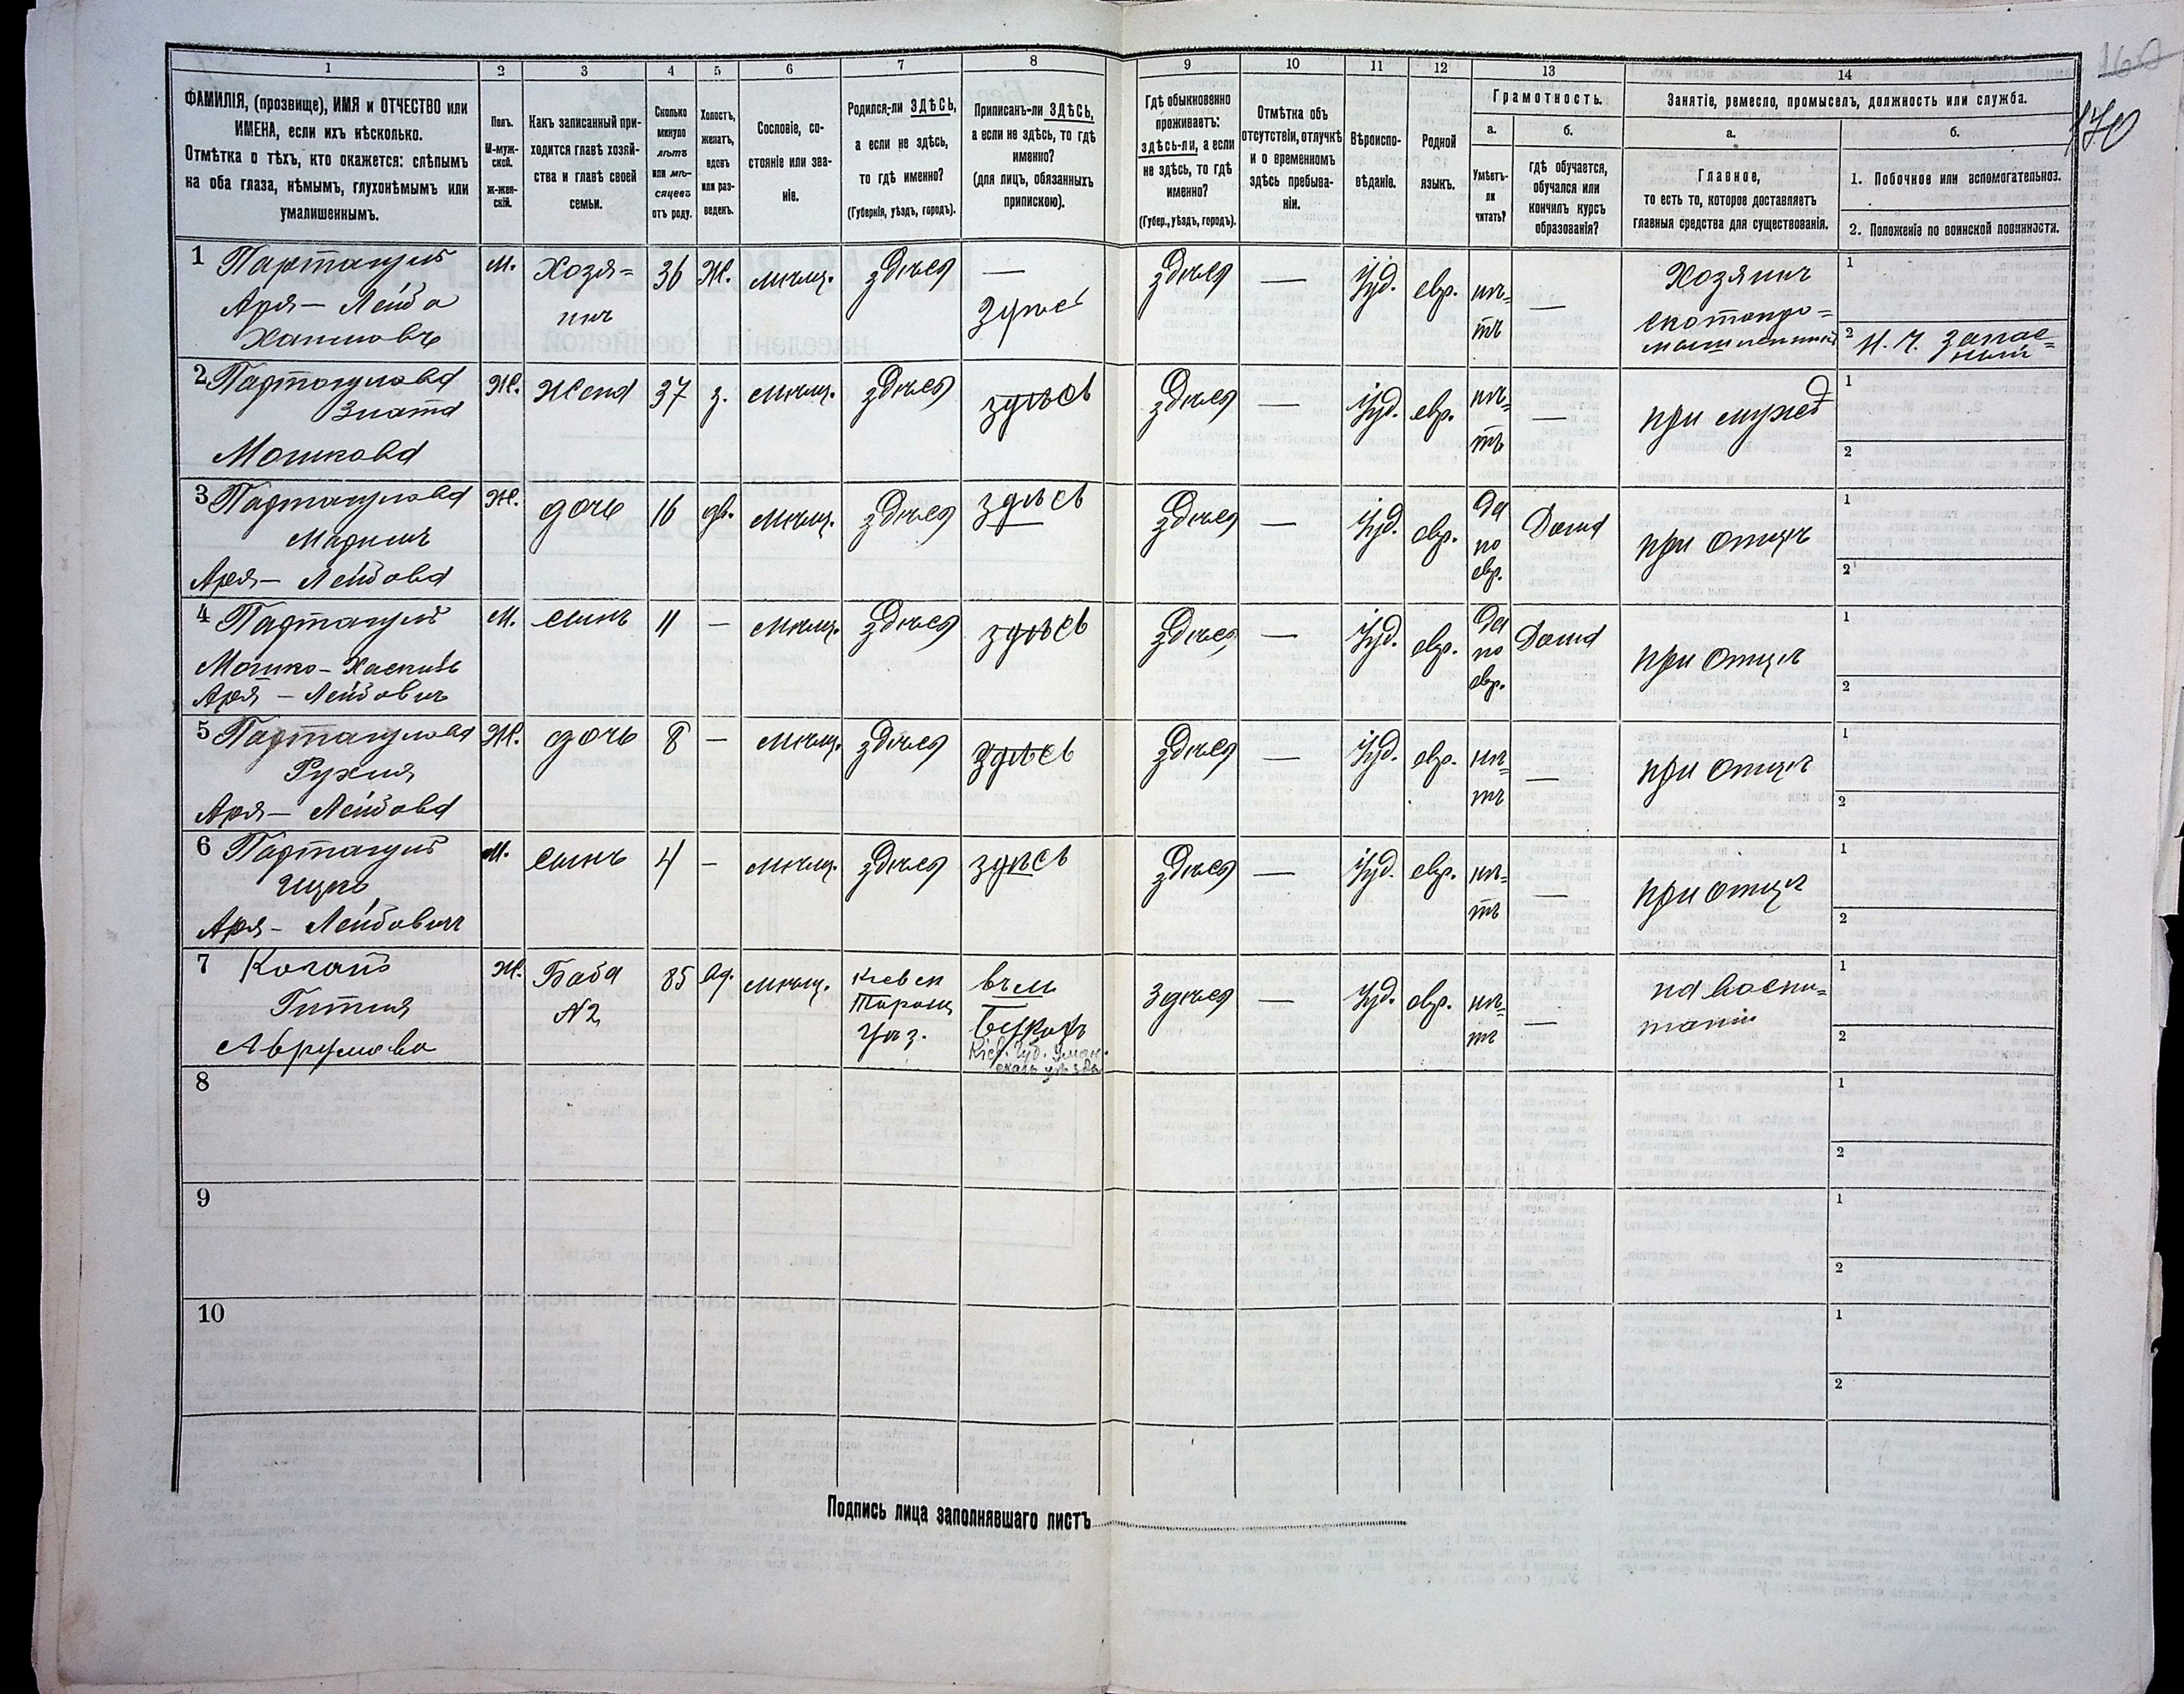 160
170
1 2 3 4 5 6 7 8 9 10 11 12 13 14
ФАМИЛІЯ, (прозвище), ИМЯ и ОТЧЕСТВО или
ИМЕНА, если ихъ нѣсколько.
Отмѣтка о тѣхъ, кто окажется: слѣпымъ
на оба глаза, нѣмымъ, глухонѣмымъ или
умалишеннымъ.
Полъ.
М-муж-
ской.
ж-жен-
скій.
Какъ записанный при-
ходится главѣ хозяй-
ства и главѣ своей
семьи.
Сколько
минуло
лѣтъ
или мѣ-
сяцевъ
отъ роду.
Холостъ,
женатъ,
вдовъ
или раз-
веденъ.
Сословіе, со-
стояніе или зва-
ніе.
Родился-ли ЗДѢСЬ,
а если не здѣсь,
то гдѣ именно?
(Губернія, уѣздъ, городъ).
Приписанъ-ли ЗДѢСЬ,
а если не здѣсь, то гдѣ
именно?
(для лицъ, обязанныхъ
припискою).
Гдѣ обыкновенно
проживаетъ:
здѣсь-ли, а если
не здѣсь, то гдѣ
именно?
(Губер., уѣздъ, городъ).
Отмѣтка объ
отсутствіи, отлучкѣ
и о временномъ
здѣсь пребыва-
ніи.
Вѣроиспо-
вѣданіе.
Родной
языкъ.
Грамотность.
а.
Умѣетъ-
ли
читать?
б.
гдѣ обучается,
обучался или
кончилъ курсъ
образованія?
Занятіе, ремесло, промыселъ, должность или служба.
а.
Главное,
то есть то, которое доставляетъ
главныя средства для существованія.
б.
1. Побочное или вспомогательное.
2. Положеніе по воинской повинности.
1 Партацулъ
Аря — Лейба
Хаимовъ
М.
Хозя=
инъ
36
Ж.
мѣщ.
здѣся
—
здѣсь
здѣся
—
Іуд.
евр.
нѣ=
тъ
—
Хозяинъ
скотопро=
мышленникъ
1
2 Н. Ч. запас=
ный
2 Партацулова
Злата
Мошкова
Ж.
Жена
37
з.
мѣщ.
здѣся
здѣсь
здѣся
—
Іуд.
евр.
нѣ=
тъ
—
при мужѣ
1
2
3 Партацулова
Маріимъ
Аря — Лейбова
Ж.
дочь
16
дѣ.
мѣщ.
здѣся
здѣсь
здѣся
—
Іуд.
евр.
Да
по
евр.
Дома
при отцѣ
1
2
4 Партацулъ
Мошко — Хаскиль
Аря — Лейбовичъ
М.
сынъ
11
—
мѣщ.
здѣся
здѣсь
здѣся
—
Іуд.
евр.
Да
по
евр.
Дома
при отцѣ
1
2
5 Партацулова
Рухля
Аря — Лейбова
Ж.
дочь
8
—
мѣщ.
здѣся
здѣсь
здѣся
—
Іуд.
евр.
нѣ=
тъ
—
при отцѣ
1
2
6 Партацулъ
Ицко
Аря — Лейбовичъ
М.
сынъ
4
—
мѣщ.
здѣся
здѣсь
здѣся
—
Іуд.
евр.
нѣ=
тъ
—
при отцѣ
1
2
7 Коганъ
Гитля
Аврумова
Ж.
Баба
№2
85
вд.
мѣщ.
Кіевск
Таращ
Уѣз.
въ м.
Кіев. Губ. Уман.
скаго уѣзда
здѣся
—
Іуд.
евр.
нѣ=
тъ
—
на воспи=
таніи
1
2
8
1
2
9
1
2
10
1
2
Подпись лица заполнявшаго листъ